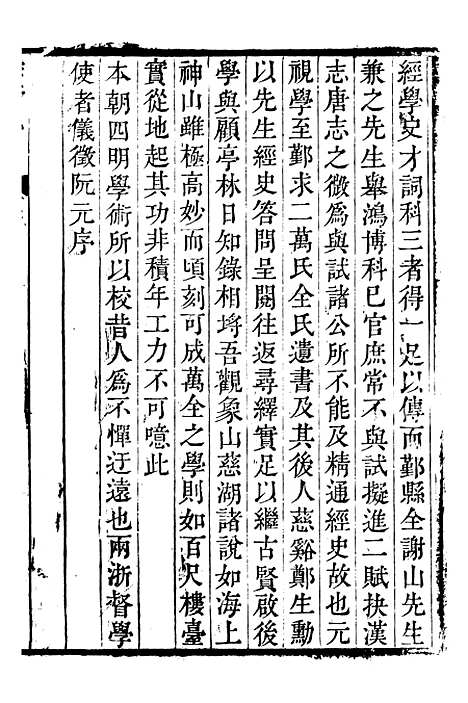 經學史才詞科三者得一足以傳而鄞縣全謝山先生
兼之先生舉鴻博科已官庶常不與試擬進二賦抉漢
志唐志之微爲與試諸公所不能及精通經史故也元
視學至鄞求二萬氏全氏遺書及其後人慈谿鄭生勳
以先生經史答問呈閱往返尋繹實足以繼古賢啟後
學與顧亭林日知錄相埒吾觀象山慈湖諸說如海上
神山雖極高妙而頃刻可成萬全之學則如百尺樓臺
實從地起其功非積年工力不可噫此
本朝四明學術所以校昔人爲不憚迂遠也兩浙督學
使者儀徵阮元序